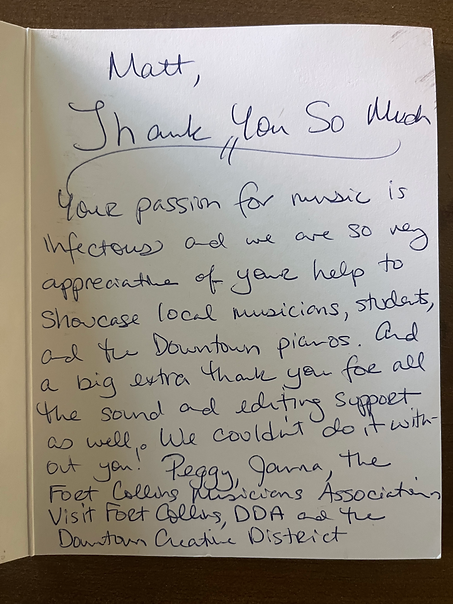 Matt,
Thank You So Much
Your passion for music is
infectous and we are so very
appreciative of your help to
Showcase local musicians, students,
and the Downtown pianos. And
a big extra thank you for all
the sound and editing support
as well. We couldn't do it with-
out you! Peggy, Janna, the
Fort Collins Musicians Association,
Visit Fort Collins, DDA and the
Downtown Creative District